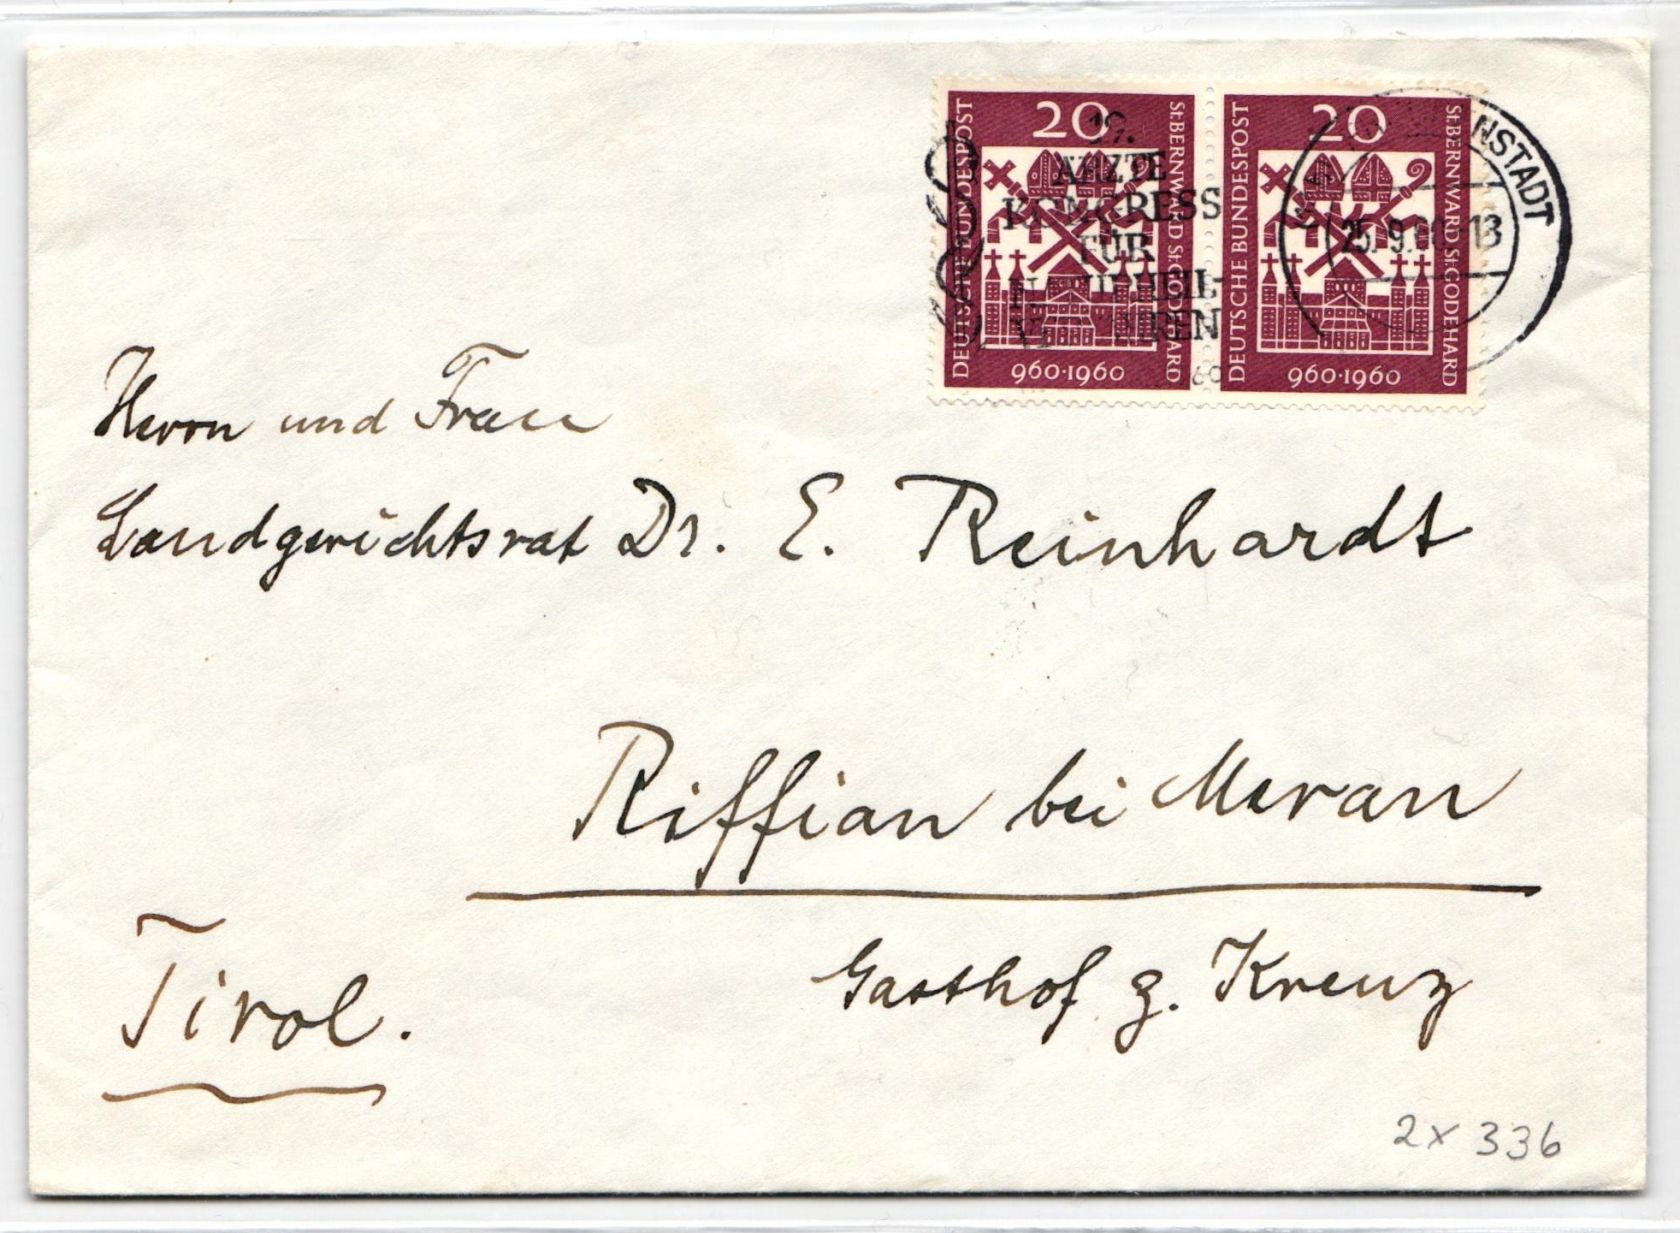 20
DEUTSCHE BUNDESPOST
St. BERNWARD St. GODEHARD
960·1960
20
DEUTSCHE BUNDESPOST
St. BERNWARD St. GODEHARD
960·1960
19.
ÄRZTE
KONGRESS
FÜR
NSTADT
25.9.60.-13
Herrn und Frau
Landgerichtsrat Dr. E. Reinhardt
Riffian bei Meran
Gasthof z. Kreuz
Tirol.
2x 336